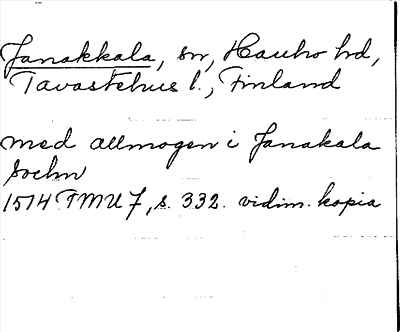 Janakkala, sn, Hauho hd,
Tavastehus l., Finland
med allmogen i Janakala
Sochn
1514 FMU 7, s. 332. vidim. kopia